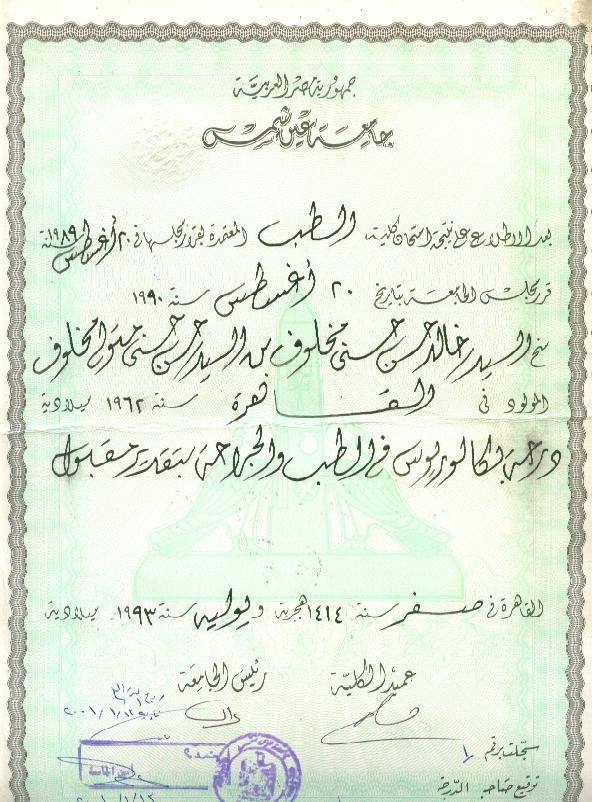 جمهورية مصر العربية
جامعة عين شمس
بعد الاطلاع على نتيجة امتحان كلية الطب المعتمدة بقرار مجلسها في ٢٠ أغسطس سنة ١٩٨٩
قرر مجلس الجامعة بتاريخ ٢٠ أغسطس سنة ١٩٩٠
منح السيد / خالد حسن حسنى مخلوف بن السيد / حسن حسنى متولى مخلوف
المولود في القاهرة سنة ١٩٦٢ ميلادية
درجة بكالوريوس في الطب والجراحة بتقدير مقبول
القاهرة في صفر سنة ١٤١٤ هجرية و يوليه سنة ١٩٩٣ ميلادية
عميد الكلية رئيس الجامعة
سجلت برقم
توقيع صاحب الدرجة